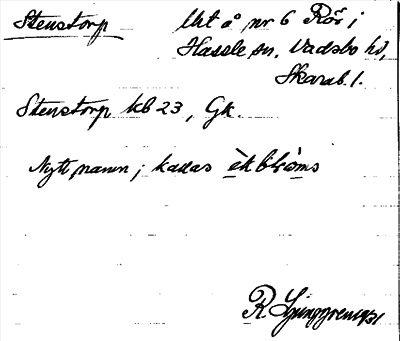 Stenstorp Uht å nr 6 Rör i
Hassle sn. Vadsbo hd,
Skarab. l.
Stenstorp kb 23, Gk.
Nytt namn; kallas
R Ljunggren 1931